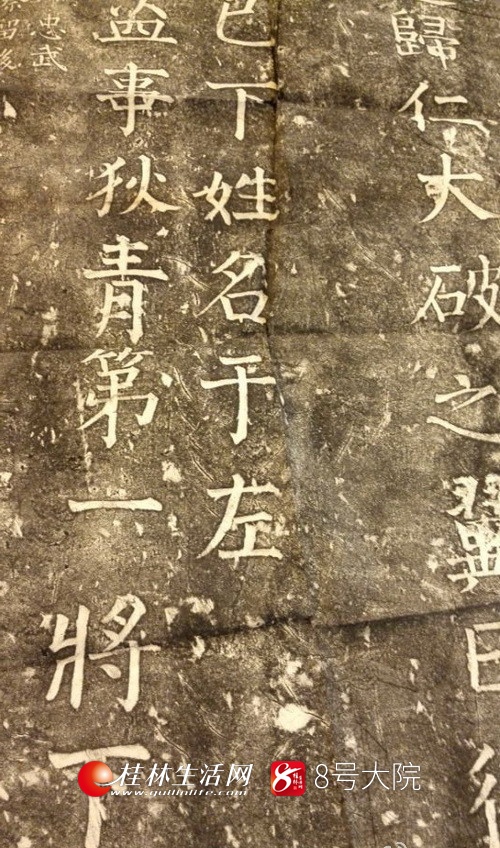 歸仁大破之翼日
已下姓名于左
益事狄青第一將下
忠武
桂林生活网
www.guilinlife.com
8号大院